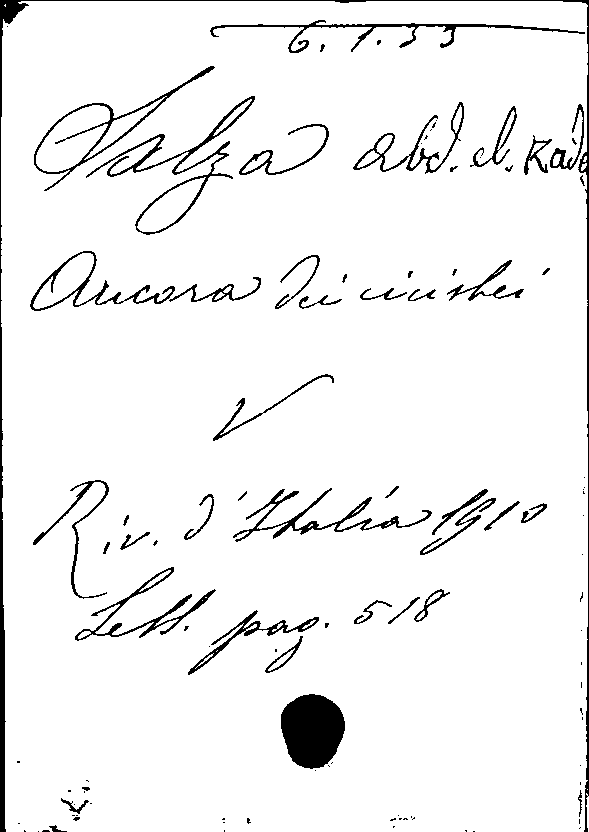 6. 1. 33
Salza abd. el. Kade
Ancora dei cicisbei
V
Riv. d'Italia 1910
Sett. pag. 518